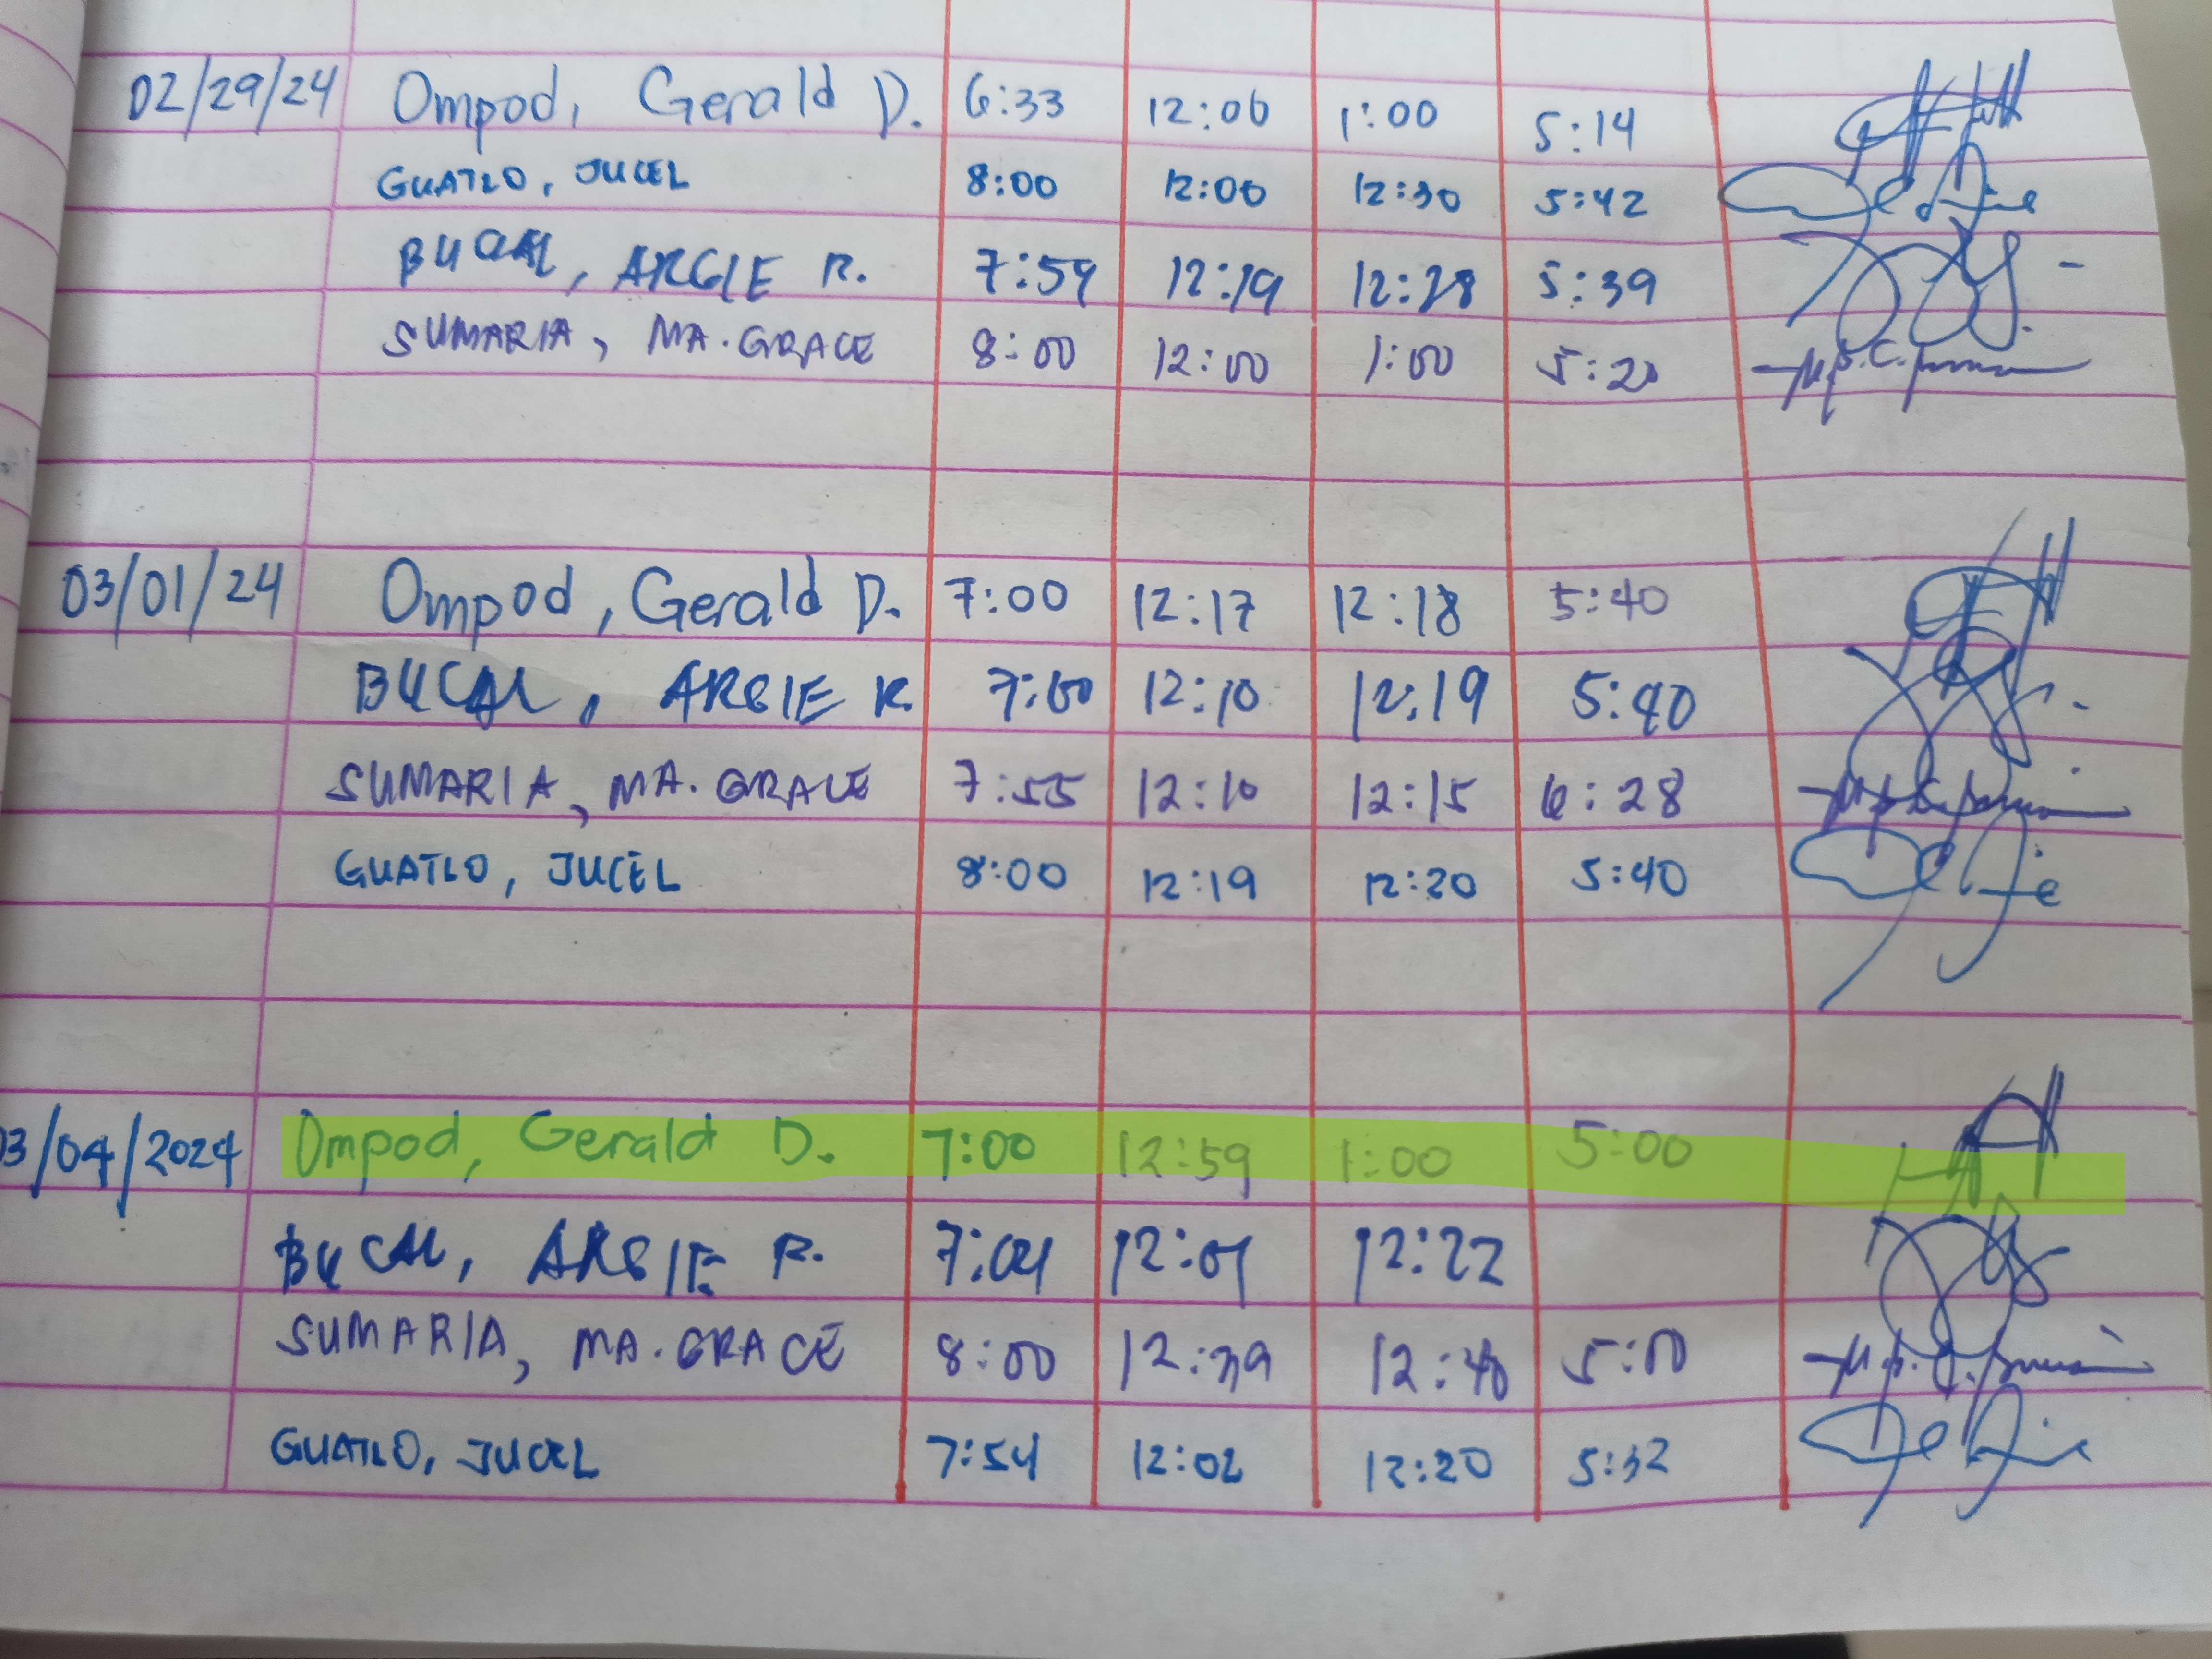 02/29/24 Ompod, Gerald D. 6:33 12:06 1:00 5:14
GUATLO, JUCEL 8:00 12:00 12:30 5:42
BUCAL, ARGIE R. 7:59 12:19 12:28 5:39
SUMARIA, MA. GRACE 8:00 12:00 1:00 5:20
03/01/24 Ompod, Gerald D. 7:00 12:17 12:18 5:40
BUCAL, ARGIE R. 7:00 12:10 12:19 5:40
SUMARIA, MA. GRACE 7:55 12:10 12:15 6:28
GUATLO, JUCEL 8:00 12:19 12:20 5:40
3/04/2024 Ompod, Gerald D. 7:00 12:59 1:00 5:00
BUCAL, ARGIE R. 12:22
SUMARIA, MA. GRACE 8:00 12:39 12:40 5:00
GUATLO, JUCEL 7:54 12:02 12:20 5:32